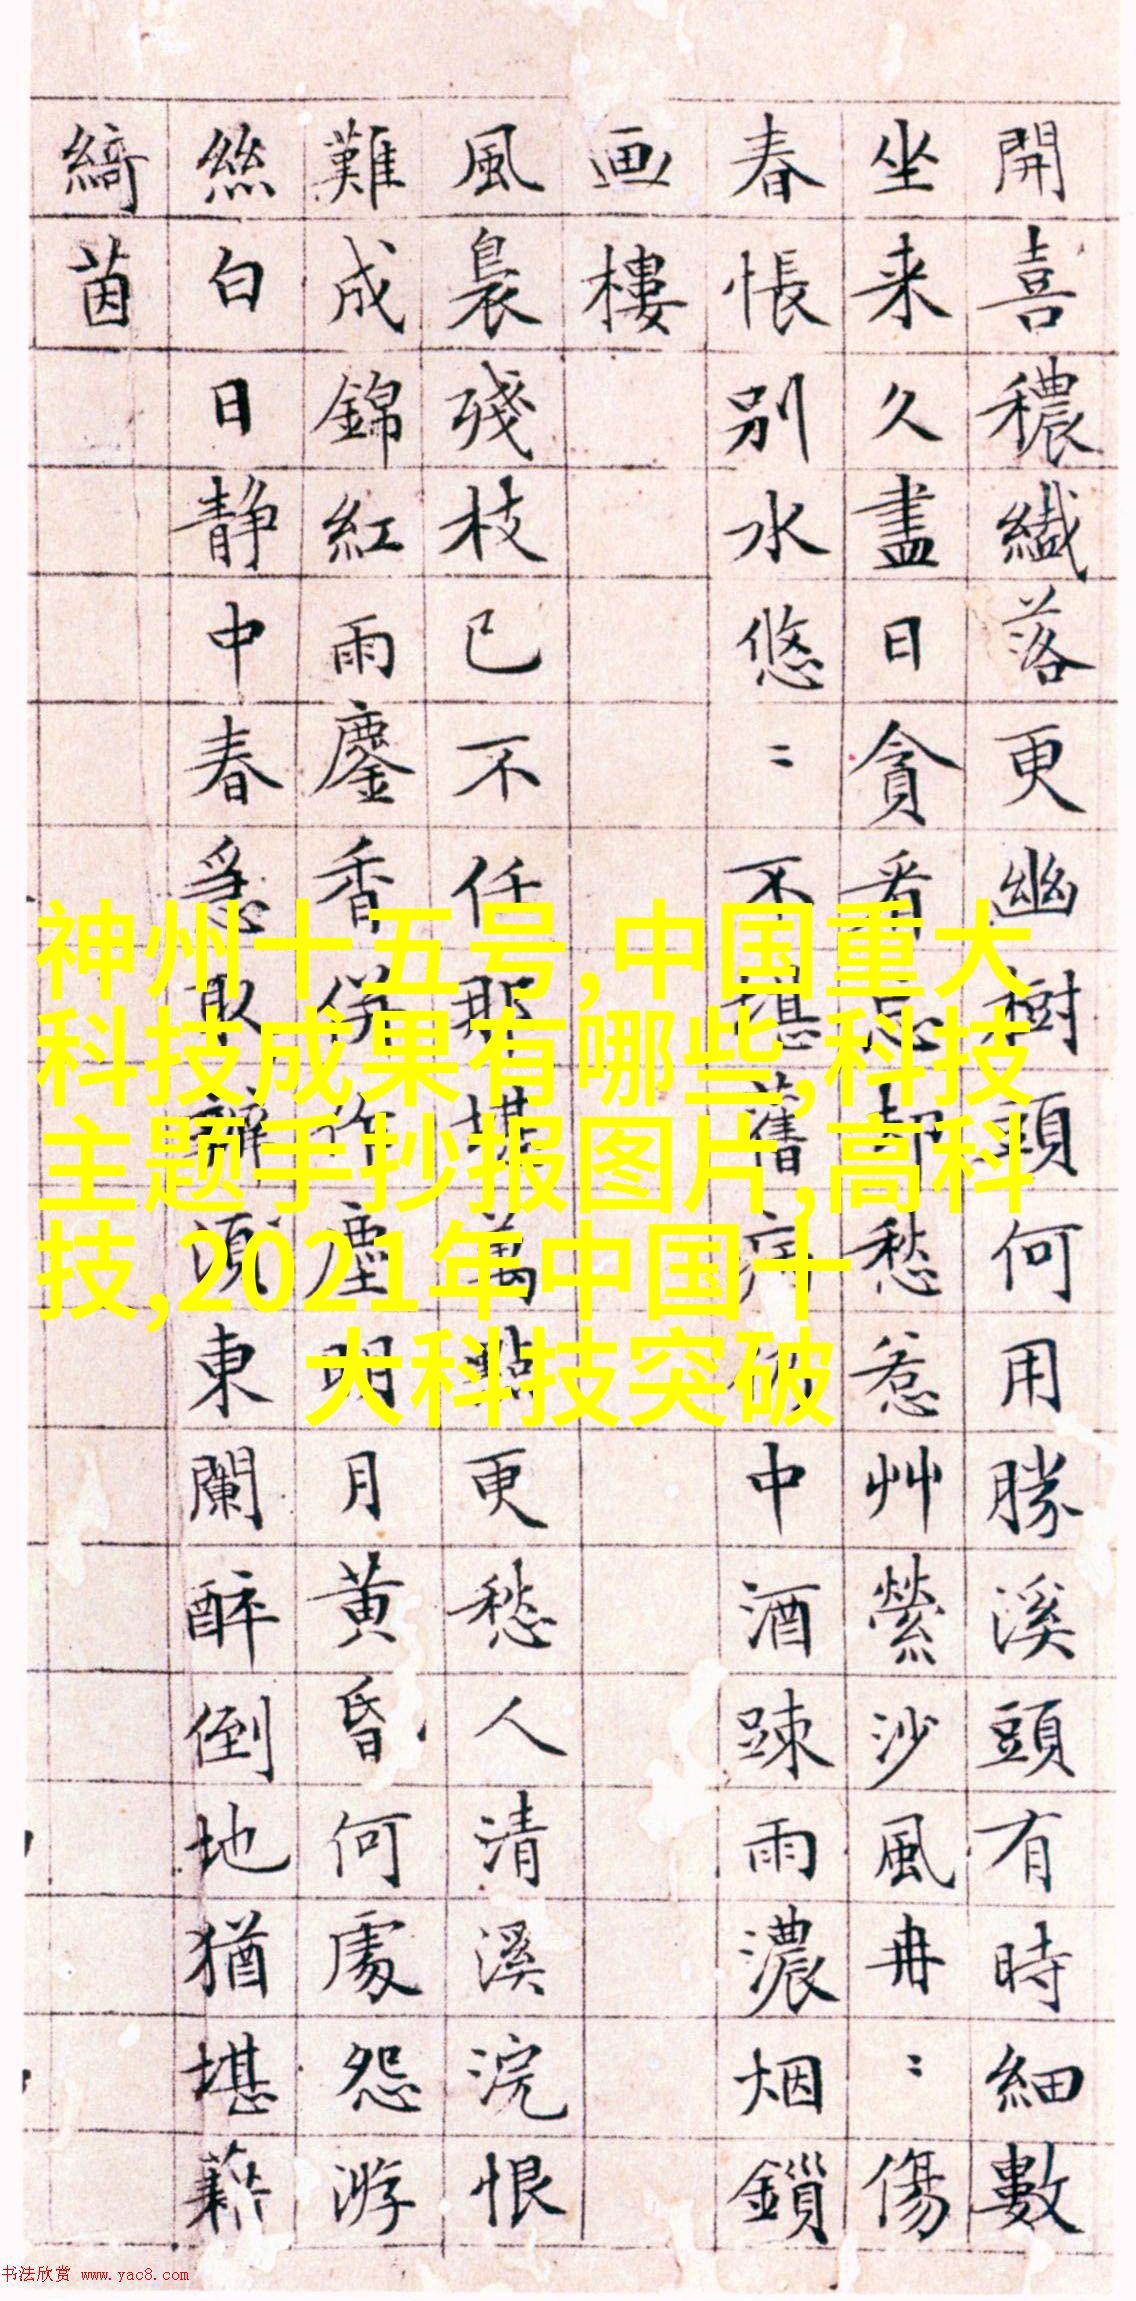 開喜穠纎落更幽樹頭何用勝溪頭有時細數
坐来久盡日貪看忘却愁惹艸縈沙風冉〻傷
春悵別水悠〻不堪舊病仍中酒踈雨濃烟鎖
画樓
風裊殘枝已不任那堪萬點更愁人清溪浣恨
難成錦紅雨鏖香併作塵明月黄昏何處怨游
絲白日靜中春急取須東闌醉倒地猶堪藉
綺茵
神州十五号,中国重大
科技成果有哪些,科技
主题手抄报图片,高科
技,2021年中国十
大科技突破
书法欣赏 www.yac8.com